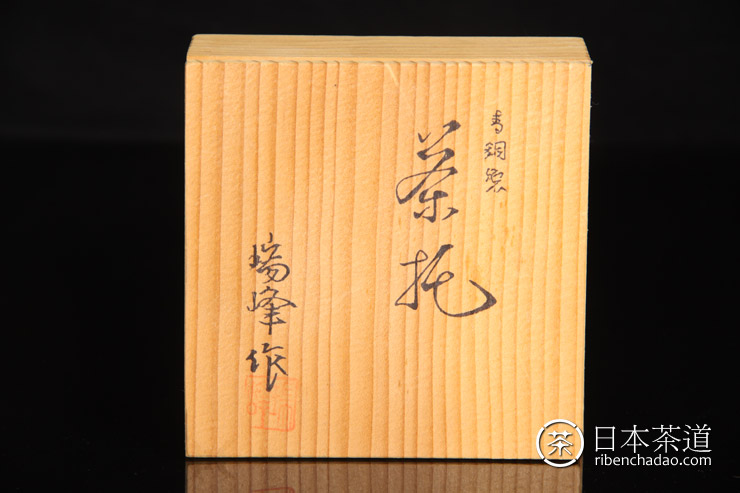 青銅製
茶托
瑞峰作
日本茶道
茶
ribenchadao.com